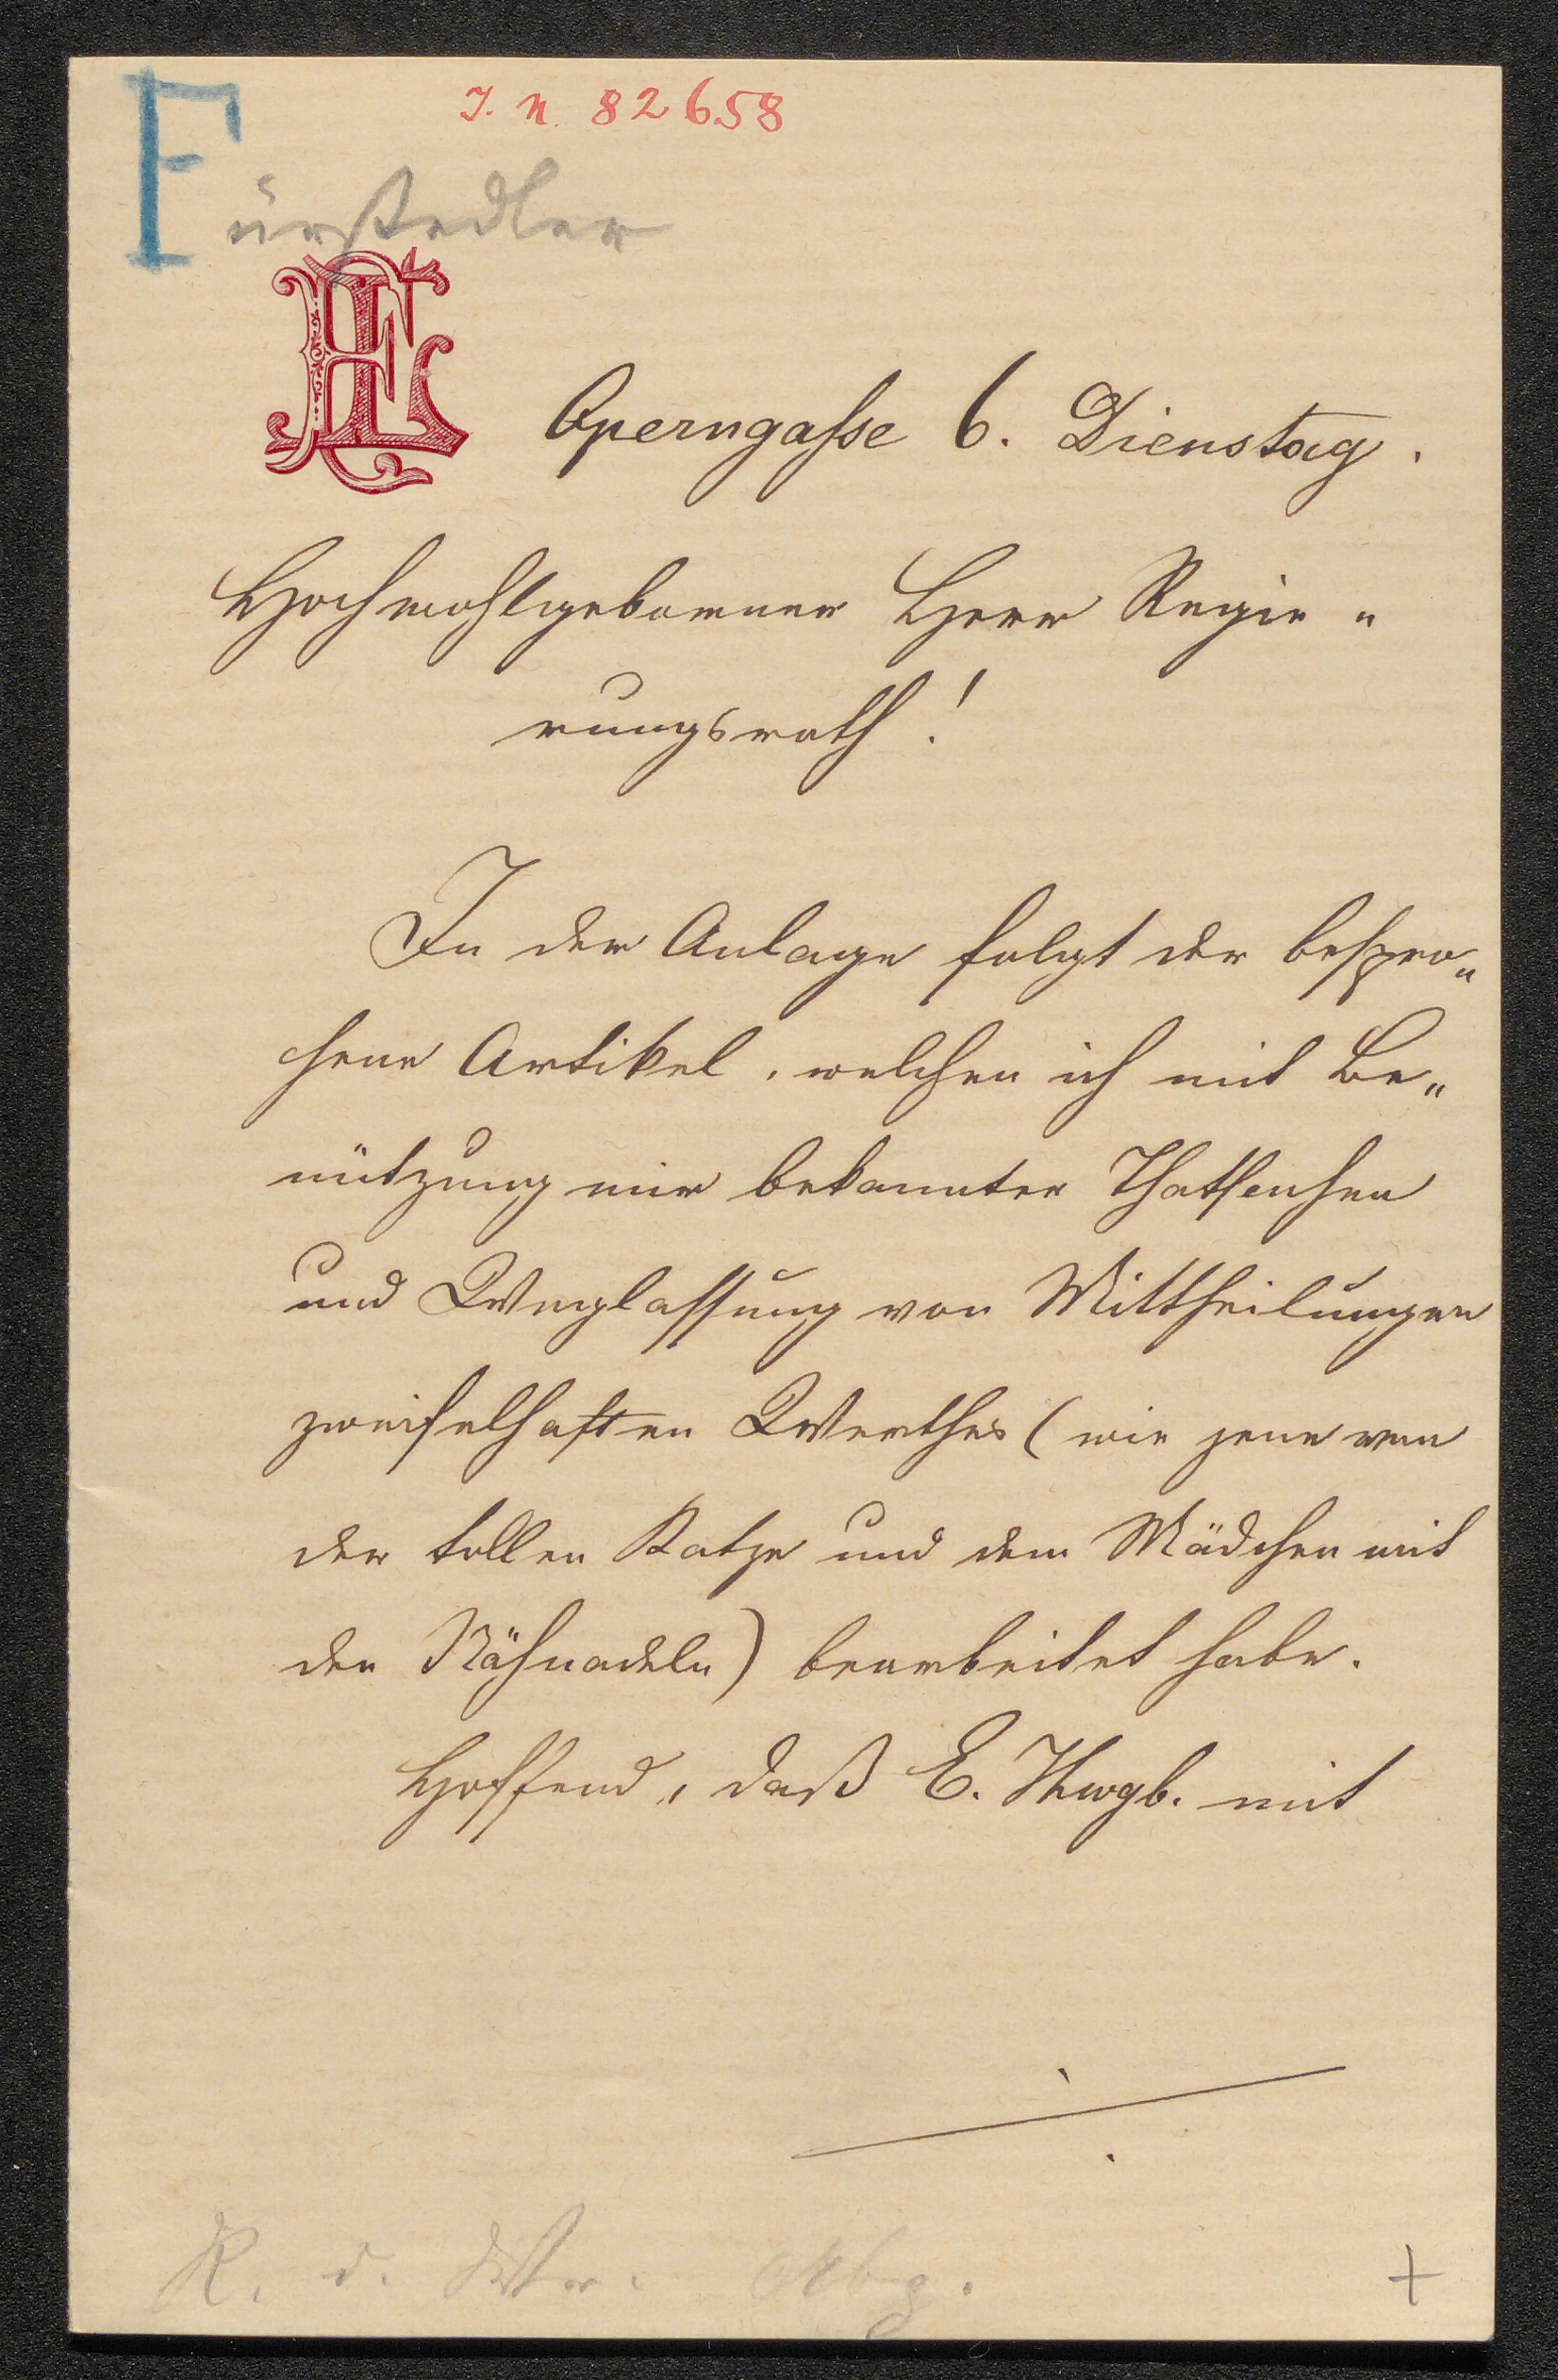 J. N. 82658
Fürstedler
Operngasse 6. Dienstag.
Hochwohlgeborner Herr Regie„
rungsrath!
In der Anlage folgt der bespro„
chene Artikel, welchen ich mit Be„
nützung mir bekannter Thatsachen
und Weglassung von Mittheilungen
zweifelhaften Werthes (wie jene von
der tollen Katze und dem Mädchen mit
den Nähnadeln) bearbeitet habe.
Hoffend, daß E. Hwgb. mit
R. d. Wr.
+